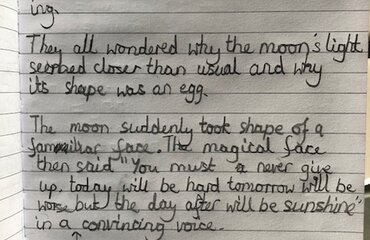 ing.
They all wondered why the moon's light
seemed closer than usual and why
its shape was an egg.
The moon suddenly took shape of a
familiar face. The magical face
then said "You must a never give
up, today will be hard tomorrow will be
worse but the day after will be sunshine"
in a convincing voice.